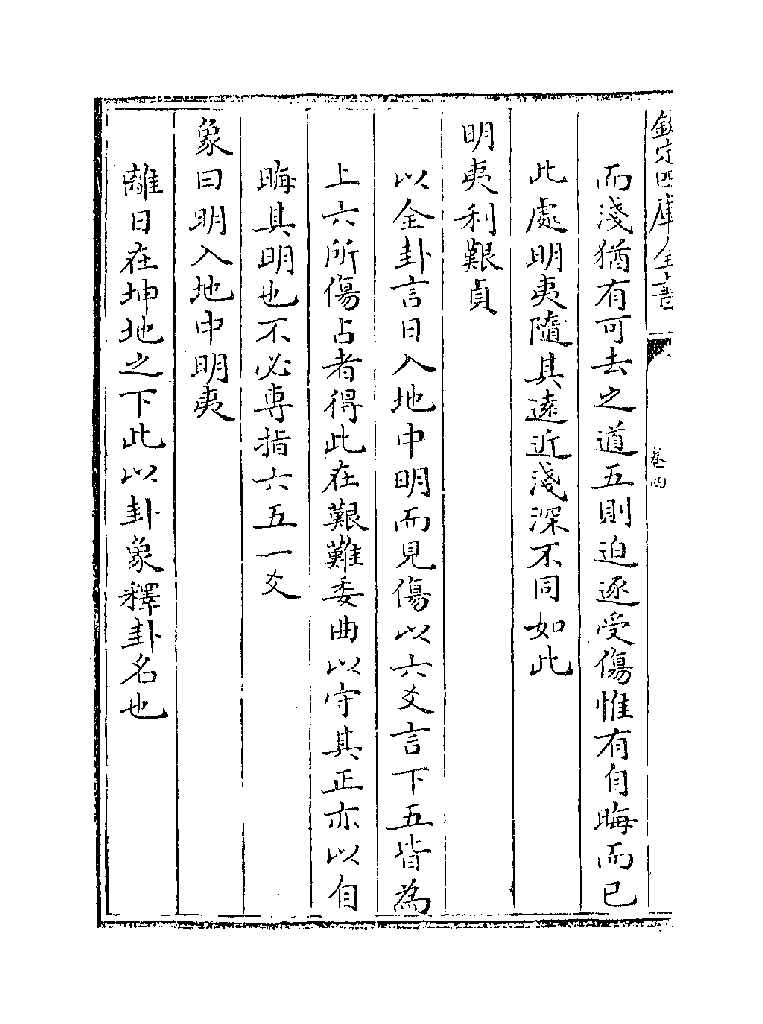 欽定四庫全書
卷四
而淺猶有可去之道五則迫逐受傷惟有自晦而已
此處明夷隨其遠近淺深不同如此
明夷利艱貞
以全卦言日入地中明而見傷以六爻言下五皆為
上六所傷占者得此在艱難委曲以守其正亦以自
晦其明也不必專指六五一爻
彖曰明入地中明夷
離日在坤地之下此以卦象釋卦名也